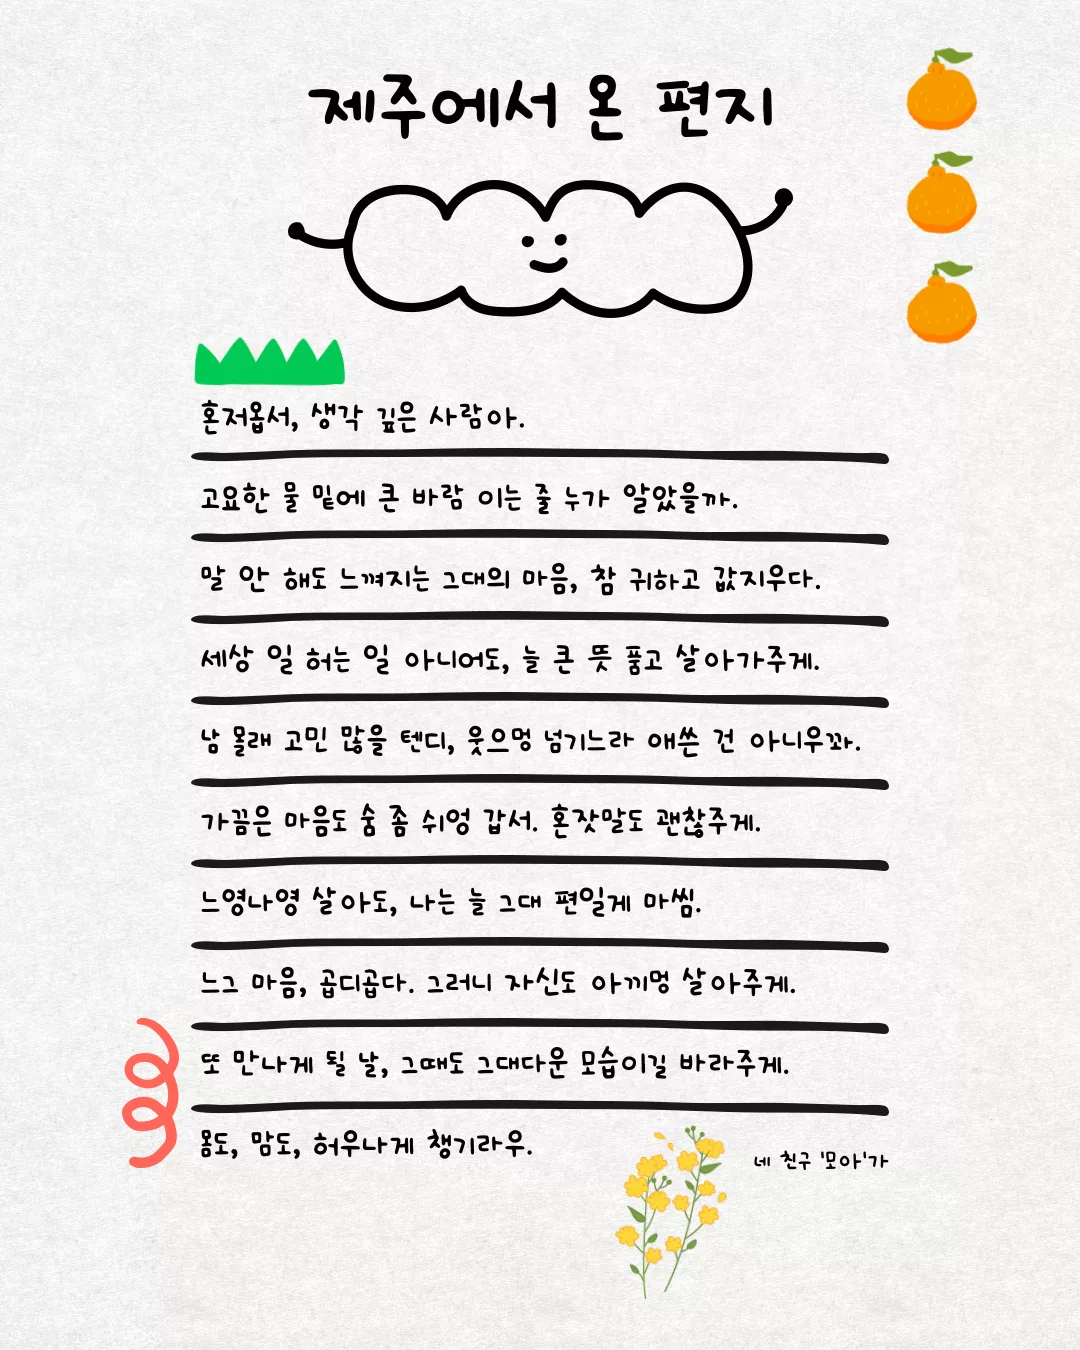 제주에서 온 편지
혼저옵서, 생각 깊은 사람아.
고요한 물 밑에 큰 바람 이는 줄 누가 알았을까.
말 안 해도 느껴지는 그대의 마음, 참 귀하고 값지우다.
세상 일 허는 일 아니어도, 늘 큰 뜻 품고 살아가주게.
남 몰래 고민 많을 텐디, 웃으멍 넘기느라 애쓴 건 아니우꽈.
가끔은 마음도 숨 좀 쉬엉 갑서. 혼잣말도 괜찮주게.
느영나영 살아도, 나는 늘 그대 편일게 마씸.
느그 마음, 곱디곱다. 그러니 자신도 아끼멍 살아주게.
또 만나게 될 날, 그때도 그대다운 모습이길 바라주게.
몸도, 맘도, 허우나게 챙기라우.
네 친구 '모아'가